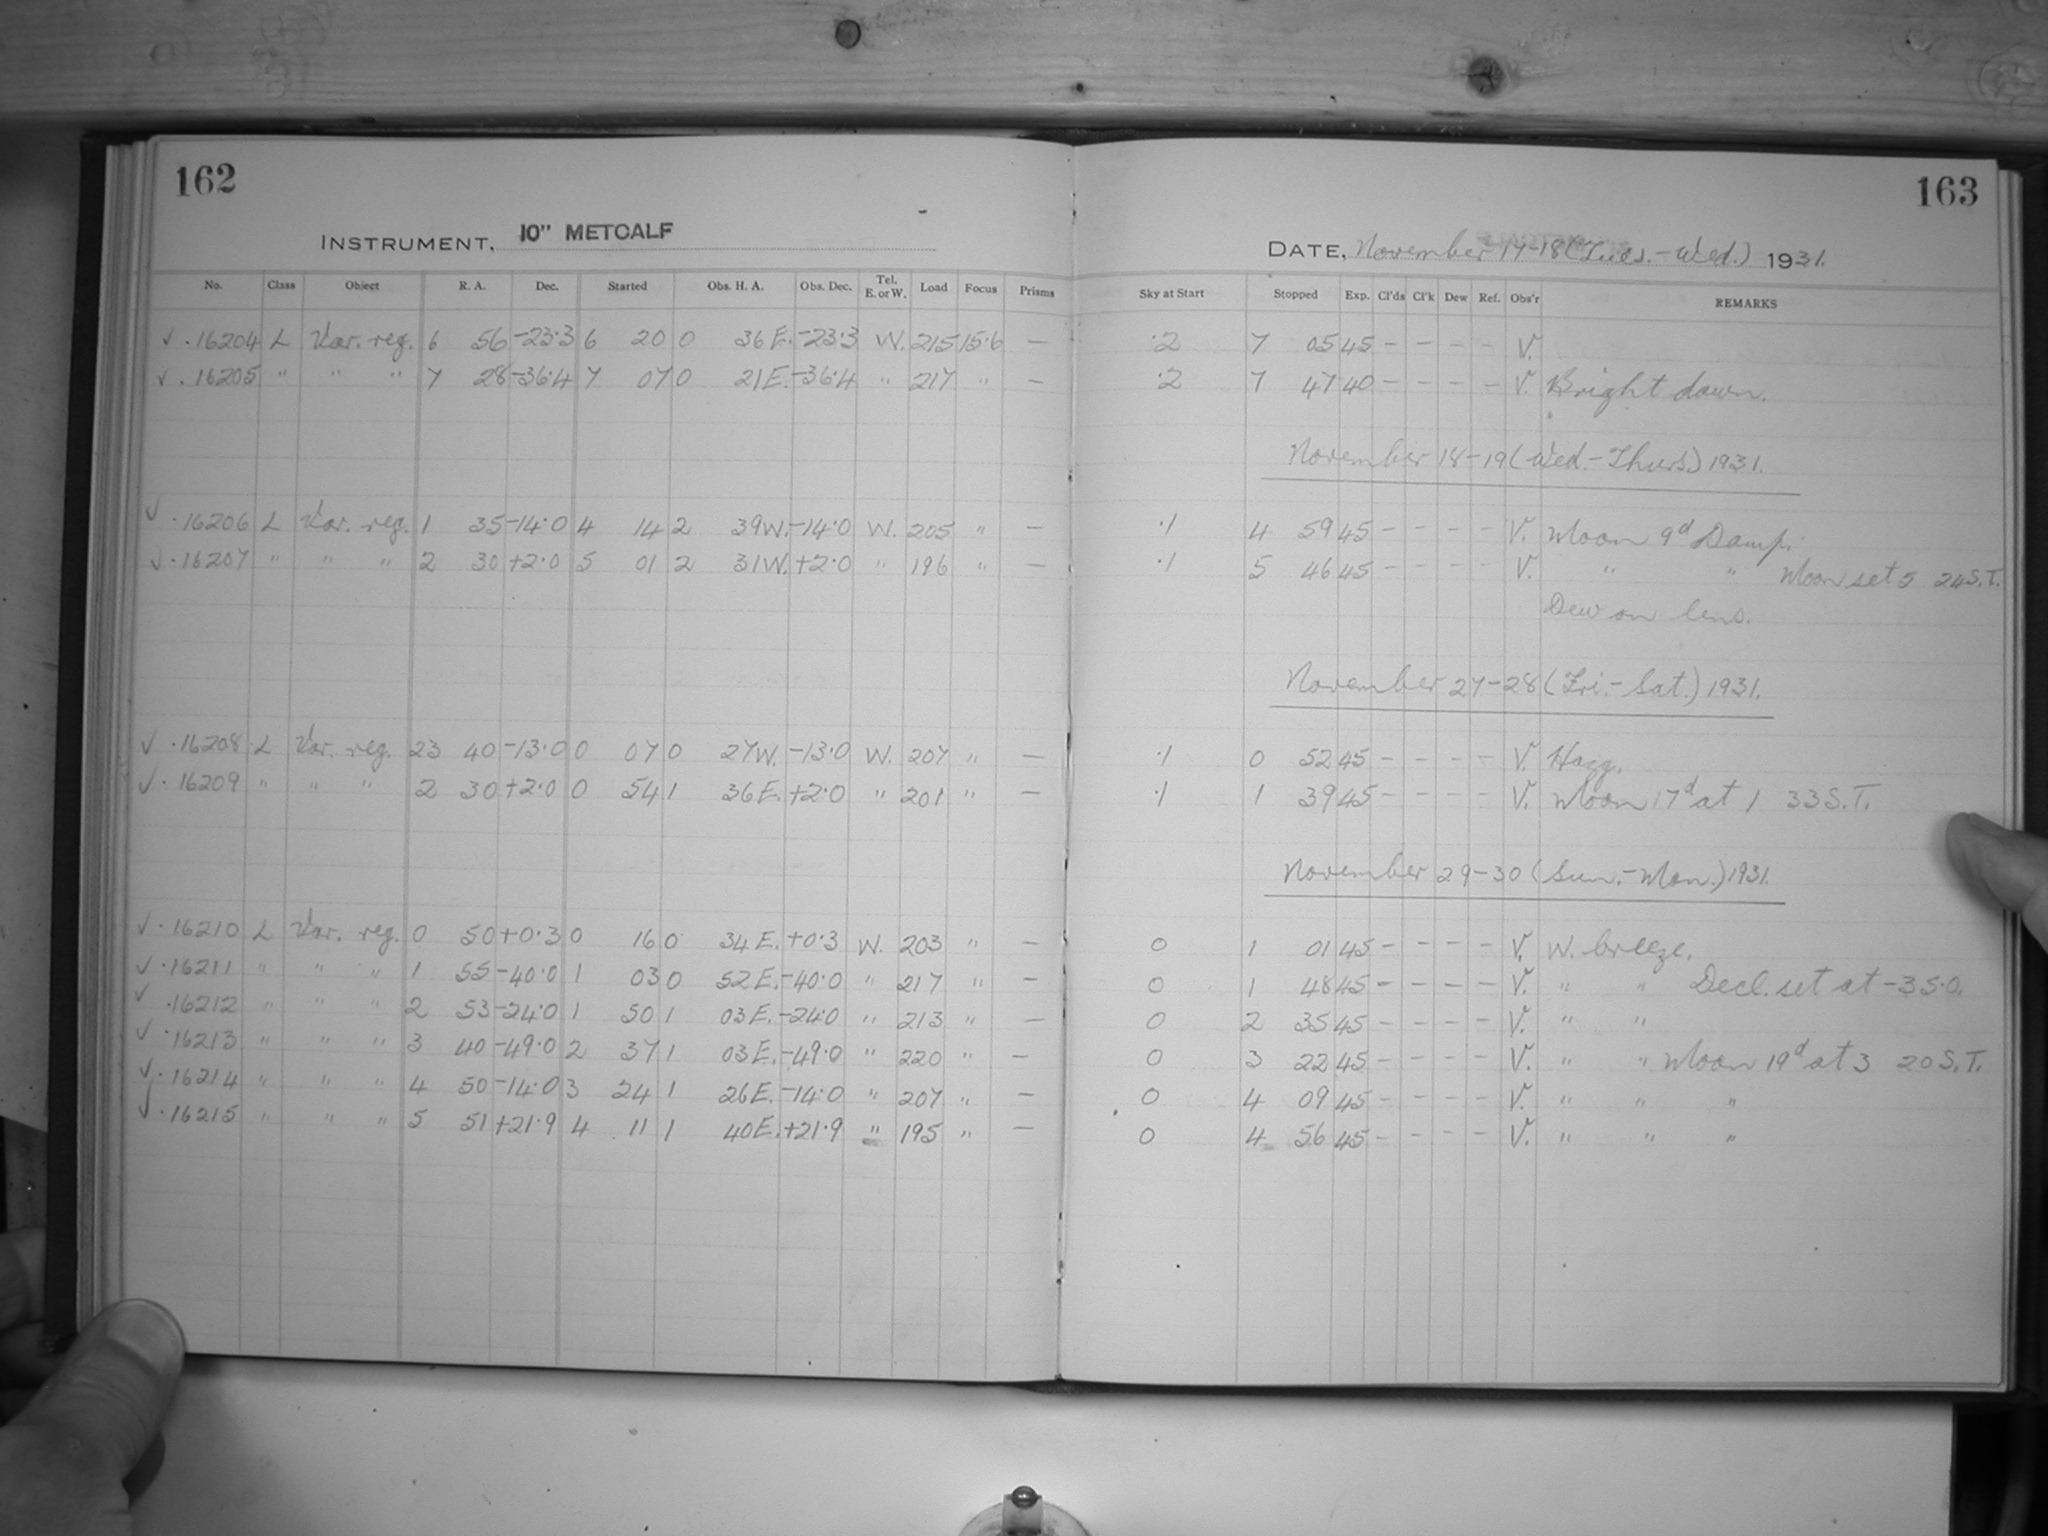 162
INSTRUMENT, 10" METCALF
No. Class Object R. A. Dec. Started Obs. H. A. Obs. Dec. Tel. E. or W. Load Focus Prisms
✓ .16204 L Var. reg. 6 56 -23.3 6 20 0 36 E. -23.3 W. 215 15.6 —
✓ .16205 " " " 7 28 -36.4 7 07 0 21 E. -36.4 " 217 " —
✓ .16206 L Var. reg. 1 35 -14.0 4 14 2 39 W. -14.0 W. 205 " —
✓ .16207 " " " 2 30 +2.0 5 01 2 31 W. +2.0 " 196 " —
✓ .16208 L Var. reg. 23 40 -13.0 0 07 0 27 W. -13.0 W. 207 " —
✓ .16209 " " " 2 30 +2.0 0 54 1 36 E. +2.0 " 201 " —
✓ .16210 L Var. reg. 0 50 +0.3 0 16 0 34 E. +0.3 W. 203 " —
✓ .16211 " " " 1 55 -40.0 1 03 0 52 E. -40.0 " 217 " —
✓ .16212 " " " 2 53 -24.0 1 50 1 03 E. -24.0 " 213 " —
✓ .16213 " " " 3 40 -49.0 2 37 1 03 E. -49.0 " 220 " —
✓ .16214 " " " 4 50 -14.0 3 24 1 26 E. -14.0 " 207 " —
✓ .16215 " " " 5 51 +21.9 4 11 1 40 E. +21.9 " 195 " —
163
DATE, November 17-18 (Tues. - Wed.) 1931.
Sky at Start Stopped Exp. Cl'ds Cl'k Dew Ref. Obs'r REMARKS
.2 7 05 45 - - - - V.
.2 7 47 40 - - - - V. Bright dawn.
November 18-19 (Wed. - Thurs.) 1931.
.1 4 59 45 - - - - V. Moon 9d Damp.
.1 5 46 45 - - - - V. " " Moon set 5 24 S.T.
Dew on lens.
November 27-28 (Fri. - Sat.) 1931.
.1 0 52 45 - - - - V. Hazy.
.1 1 39 45 - - - - V. Moon 17d at 1 33 S.T.
November 29-30 (Sun. - Mon.) 1931.
0 1 01 45 - - - - V. W. breeze.
0 1 48 45 - - - - V. " " Decl. set at -35.0.
0 2 35 45 - - - - V. " "
0 3 22 45 - - - - V. " " Moon 19d at 3 20 S.T.
0 4 09 45 - - - - V. " " "
0 4 56 45 - - - - V. " " "